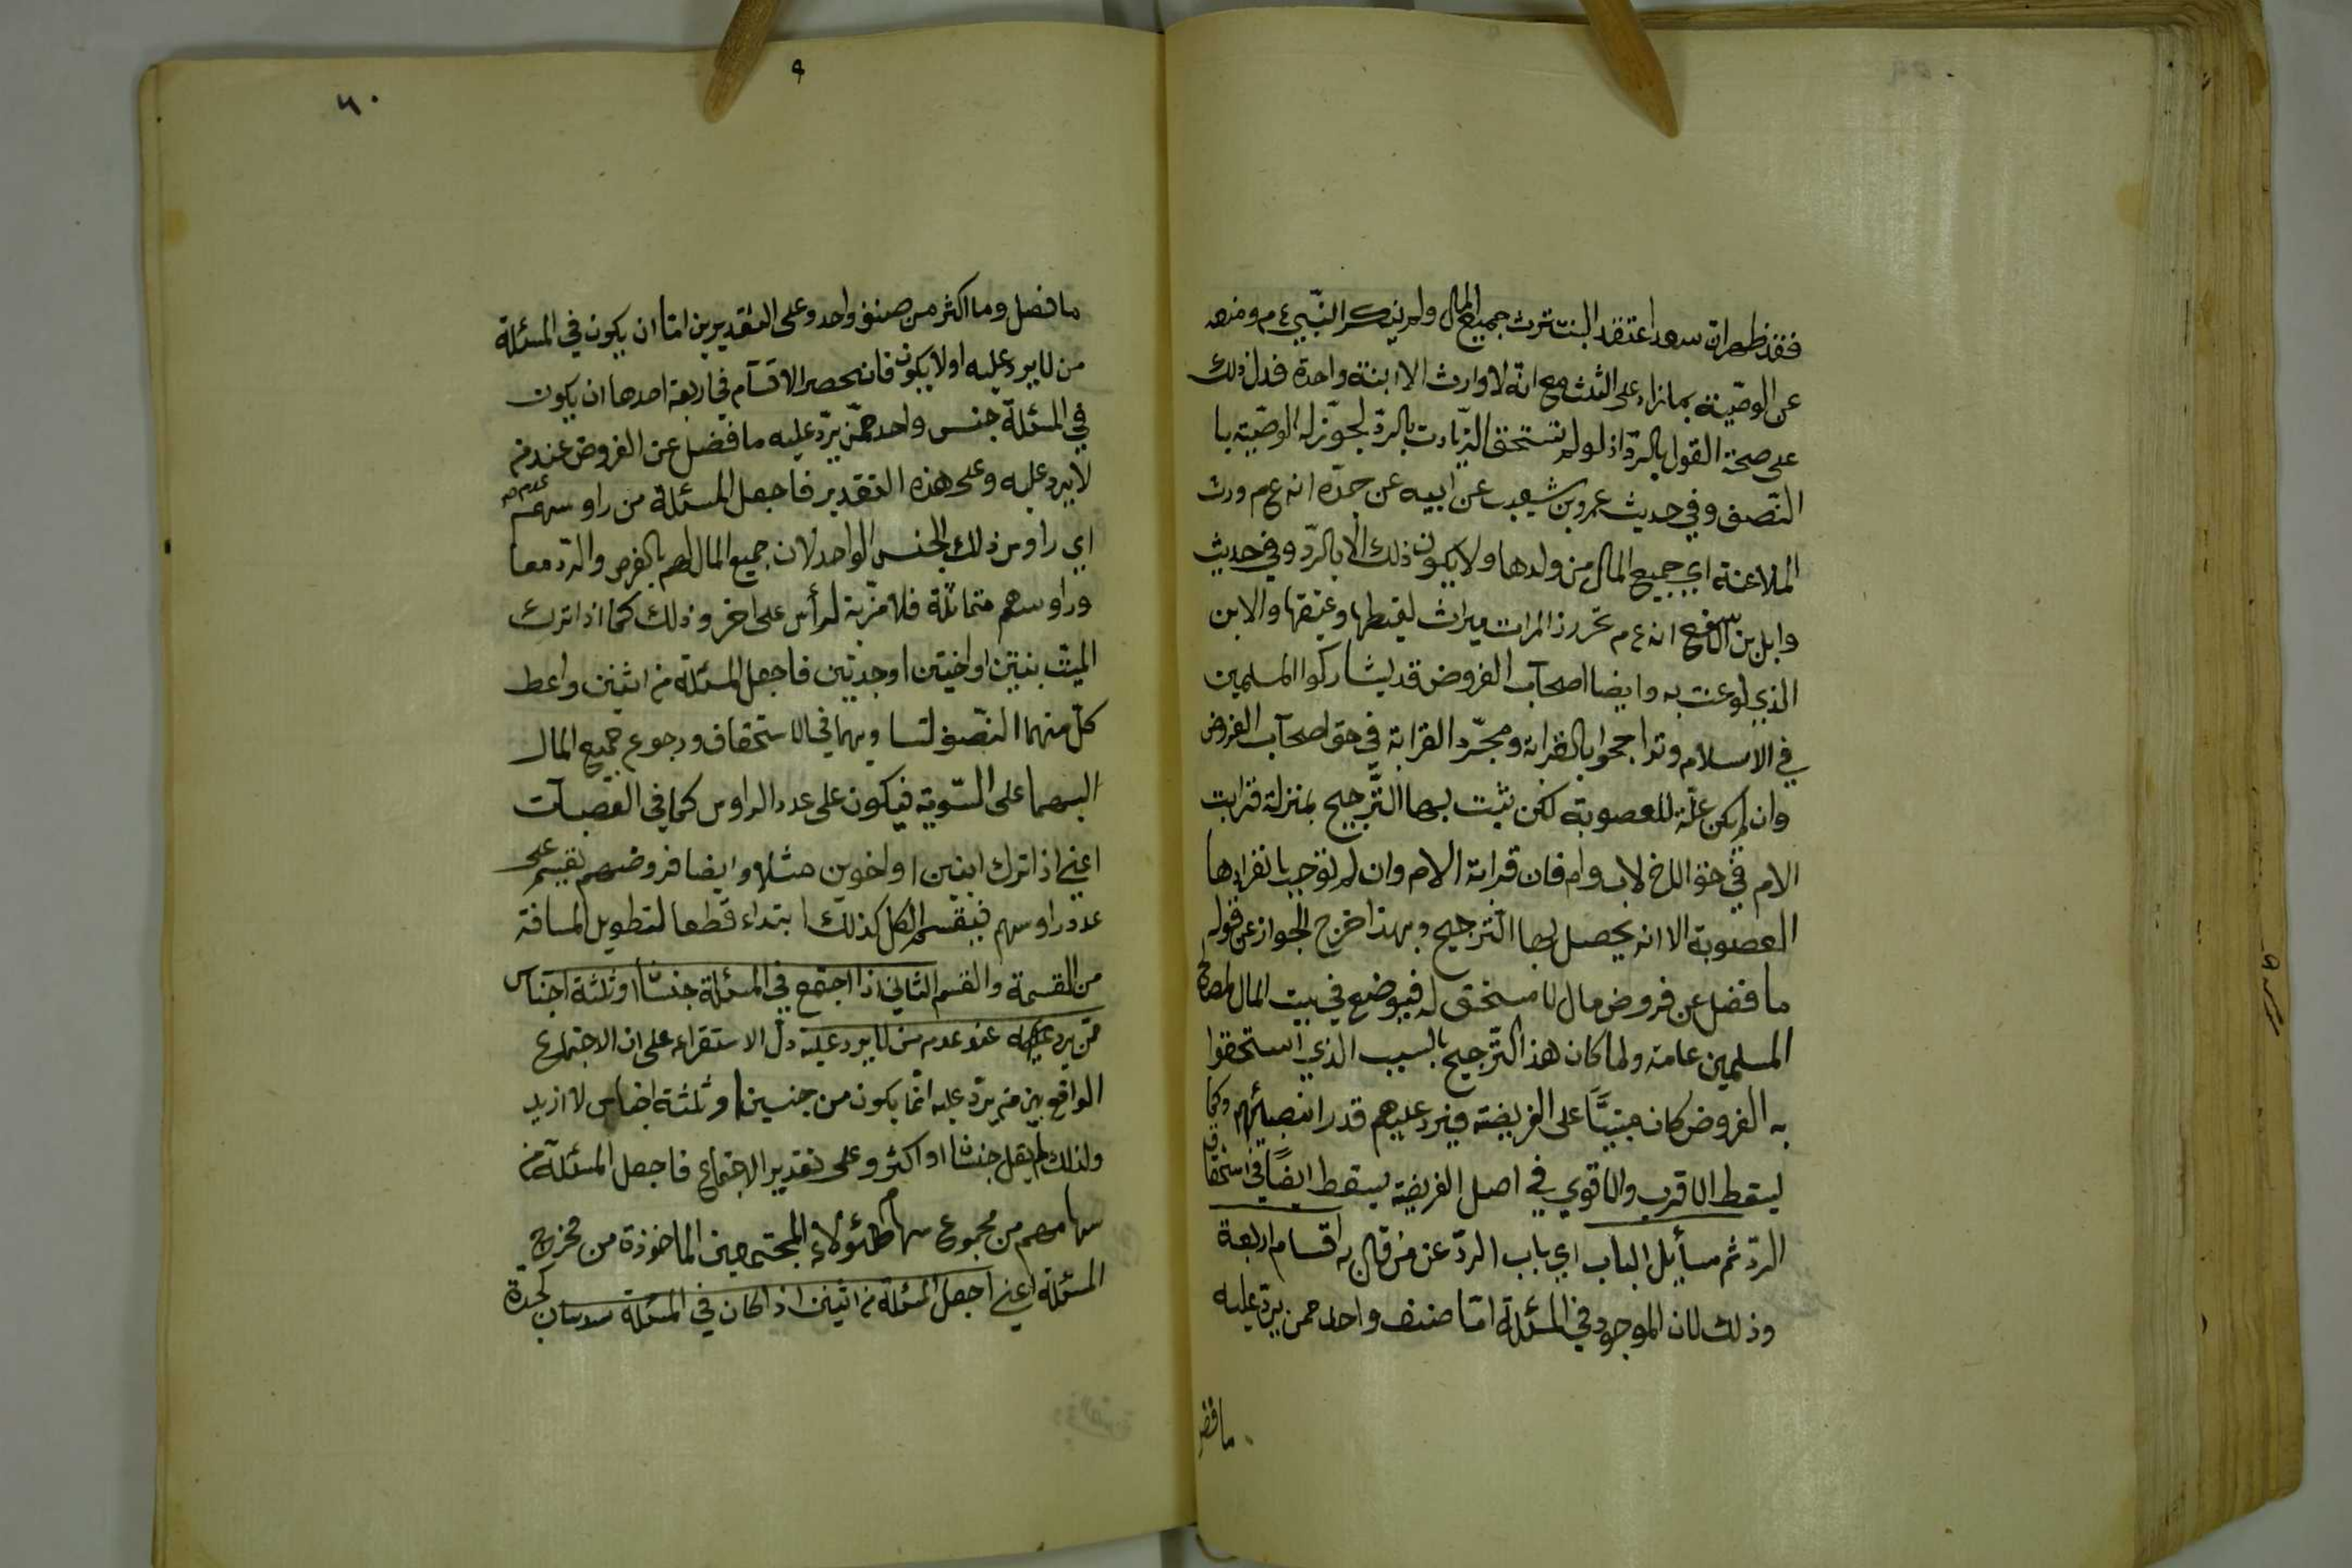 فقد ظهر ان سعدا اعتقد البنت ترث جميع المال ولم ينكر النبي ع م ومنعه
عن الوصية بما زاد على الثلث مع انه لا وارث الا ابنة واحدة فدل ذلك
على صحة القول بالرد اذ لو لم تستحق الزيادت بالرد لجوز له الوصية با
النصف وفي حديث عمرو بن شعيب عن ابيه عن جده انه ع م ورث
الملاعنة اي جميع المال من ولدها ولا يكون ذلك الا بالرد وفي حديث
وابل بن اسقع انه ع م تحرز المرات ميراث لقيطها وعتيقها والابن
الذي لوعنت به وايضا اصحاب الفروض قد يشاركوا المسلمين
في الاسلام وتراجحوا بالقرابة ومجرد القرابة في حق اصحاب الفروض
وان لم يكن علة للعصوبة لكن يثبت بها الترجيح بمنزلة قرابت
الام في حق الاخ لاب وام فان قرابة الام وان لم توجب بانفرادها
العصوبة الا انه يحصل بها الترجيح وبهذا خرج الجواز عن قوله
ما فضل عن فروض مال لا مستحق له فيوضع في بيت المال
المسلمين عامة ولما كان هذا الترجيح بالسبب الذي استحقوا
به الفروض كان مبنيا على الفريضة فيرد عليهم قدر انصبائهم وكما
يسقط الاقرب والاقوي في اصل الفريضة يسقط ايضا في استحقاق
الرد ثم مسائل الباب اي باب الرد عن من قال به اقسام اربعة
وذلك لان الموجود في المسئلة اما صنف واحد ممن يرد عليه
ما فضل
٦٠
ما فضل وما اكثر من صنف واحد وعلى التقديرين اما ان يكون في المسئلة
من لا يرد عليه او لا يكون فانحصر الاقسام في اربعة احدها ان يكون
في المسئلة جنس واحد ممن يرد عليه ما فضل عن الفروض عند من
لا يرد عليه وعلى هذه التقدير فاجعل المسئلة من راوسهم
اي راوس ذلك الجنس الواحد لان جميع المال لهم بالفرض والرد معا
وراوسهم متماثلة فلا مزية لرأس على اخر وذلك كما اذا ترك
الميت بنتين او اختين او جدتين فاجعل المسئلة من اثنين واعط
كل منهما النصف لتساويهما في الاستحقاق ورجوع جميع المال
اليهما على السوية فيكون على عدد الراوس كما في العصبات
اعني اذا ترك ابنين او اخوين مثلا وايضا فروضهم تقسم على
عدد راوسهم فيقسم الكل كذلك ابتداء قطعا لتطويل المسافة
من القسمة والقسم الثاني اذا اجتمع في المسئلة جنسان او ثلثة اجناس
ممن يرد عليه عند عدم من لا يرد عليه دل الاستقراء على ان الاجتماع
الواقع بين من يرد عليه انما يكون من جنسين او ثلثة اجناس لا ازيد
ولذلك لم يقل جنسان او اكثر وعلى تقدير الاجتماع فاجعل المسئلة من
سهامهم من مجموع سهام هؤلاء المجتمعين الماخوذة من مخرج
المسئلة اعني اجعل المسئلة من اثنين اذا كان في المسئلة سدسان كجدة